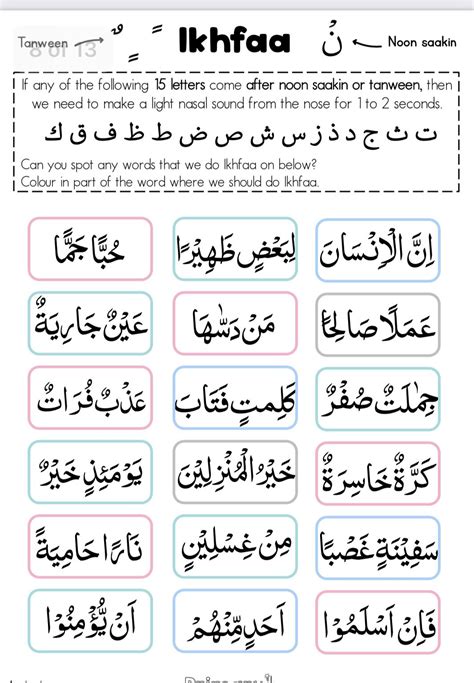 Tanween
8 of 13
ـٌ ـٍ ـً
Ikhfaa
نْ
Noon saakin
If any of the following 15 letters come after noon saakin or tanween, then
we need to make a light nasal sound from the nose for 1 to 2 seconds.
ت ث ج د ذ ز س ش ص ض ط ظ ف ق ك
Can you spot any words that we do Ikhfaa on below?
Colour in part of the word where we should do Ikhfaa.
اِنَّ الْاِنْسَانَ لِبَعْضٍ ظَهِيْرًا حُبًّا جَمًّا
عَمَلًا صَالِحًا مَنْ دَسّٰىهَا عَيْنٌ جَارِيَةٌ
جِمٰلَتٌ صُفْرٌ كَلِمٰتٍ فَتَابَ عَذْبٌ فُرَاتٌ
كَرَّةٌ خَاسِرَةٌ خَيْرُ الْمُنْزِلِيْنَ يَوْمَئِذٍ خَيْرٌ
سَفِيْنَةٍ غَصْبًا مِنْ غِسْلِيْنٍ نَارًا حَامِيَةً
فَاِنْ اَسْلَمُوْا اَحَدٍ مِّنْهُمْ اَنْ يُّؤْمِنُوْا